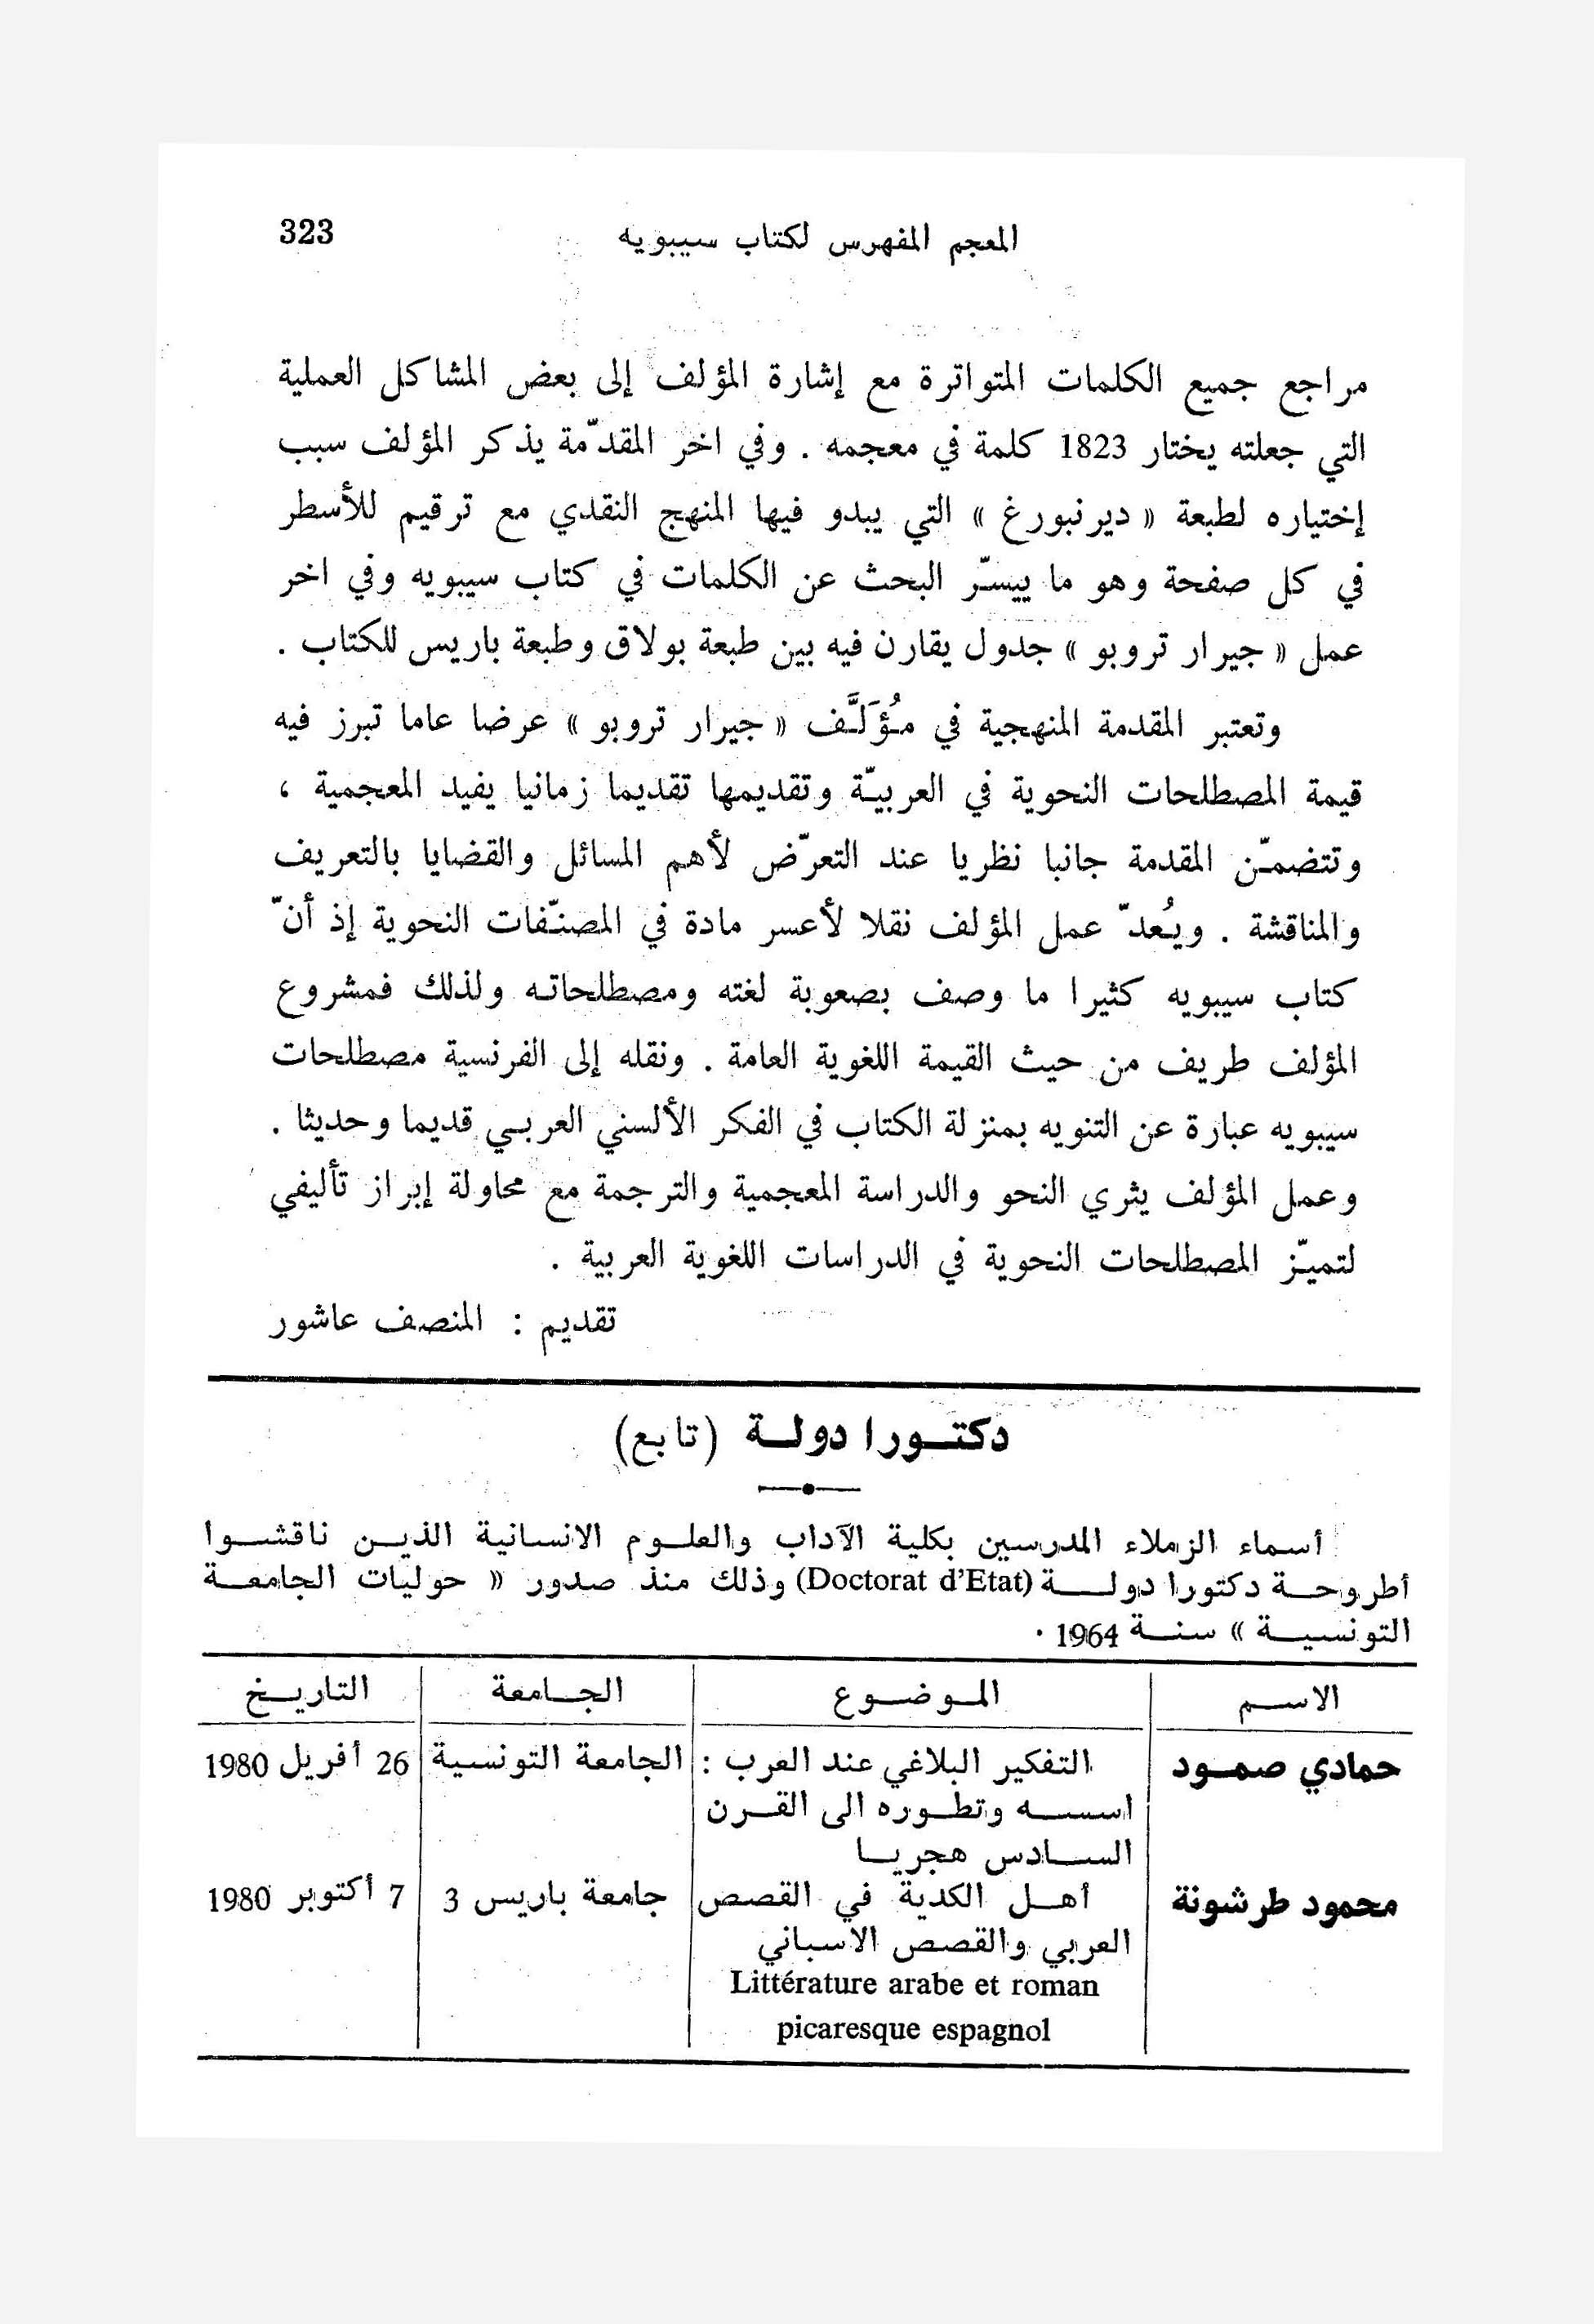 المعجم المفهرس لكتاب سيبويه 323
مراجع جميع الكلمات المتواترة مع إشارة المؤلف إلى بعض المشاكل العملية
التي جعلته يختار 1823 كلمة في معجمه . وفي اخر المقدّمة يذكر المؤلف سبب
إختياره لطبعة « ديرنبورغ » التي يبدو فيها المنهج النقدي مع ترقيم للأسطر
في كل صفحة وهو ما ييسّر البحث عن الكلمات في كتاب سيبويه وفي اخر
عمل « جيرار تروبو » جدول يقارن فيه بين طبعة بولاق وطبعة باريس للكتاب .
وتعتبر المقدمة المنهجية في مُؤَلَّف « جيرار تروبو » عرضا عاما تبرز فيه
قيمة المصطلحات النحوية في العربيّة وتقديمها تقديما زمانيا يفيد المعجمية ،
وتتضمّن المقدمة جانبا نظريا عند التعرّض لأهم المسائل والقضايا بالتعريف
والمناقشة . ويُعدّ عمل المؤلف نقلا لأعسر مادة في المصنّفات النحوية إذ أنّ
كتاب سيبويه كثيرا ما وصف بصعوبة لغته ومصطلحاته ولذلك فمشروع
المؤلف طريف من حيث القيمة اللغوية العامة . ونقله إلى الفرنسية مصطلحات
سيبويه عبارة عن التنويه بمنزلة الكتاب في الفكر الألسني العربي قديما وحديثا .
وعمل المؤلف يثري النحو والدراسة المعجمية والترجمة مع محاولة إبراز تأليفي
لتميّز المصطلحات النحوية في الدراسات اللغوية العربية .
تقديم : المنصف عاشور
دكتورا دولة (تابع)
أسماء الزملاء المدرسين بكلية الآداب والعلوم الانسانية الذين ناقشوا
أطروحة دكتورا دولة (Doctorat d'Etat) وذلك منذ صدور « حوليات الجامعة
التونسية » سنة 1964 .
الاسم الموضوع الجامعة التاريخ
حمادي صمود التفكير البلاغي عند العرب : الجامعة التونسية 26 أفريل 1980
اسسه وتطوره الى القرن
السادس هجريا
محمود طرشونة أهل الكدية في القصص جامعة باريس 3 7 أكتوبر 1980
العربي والقصص الاسباني
Littérature arabe et roman
picaresque espagnol